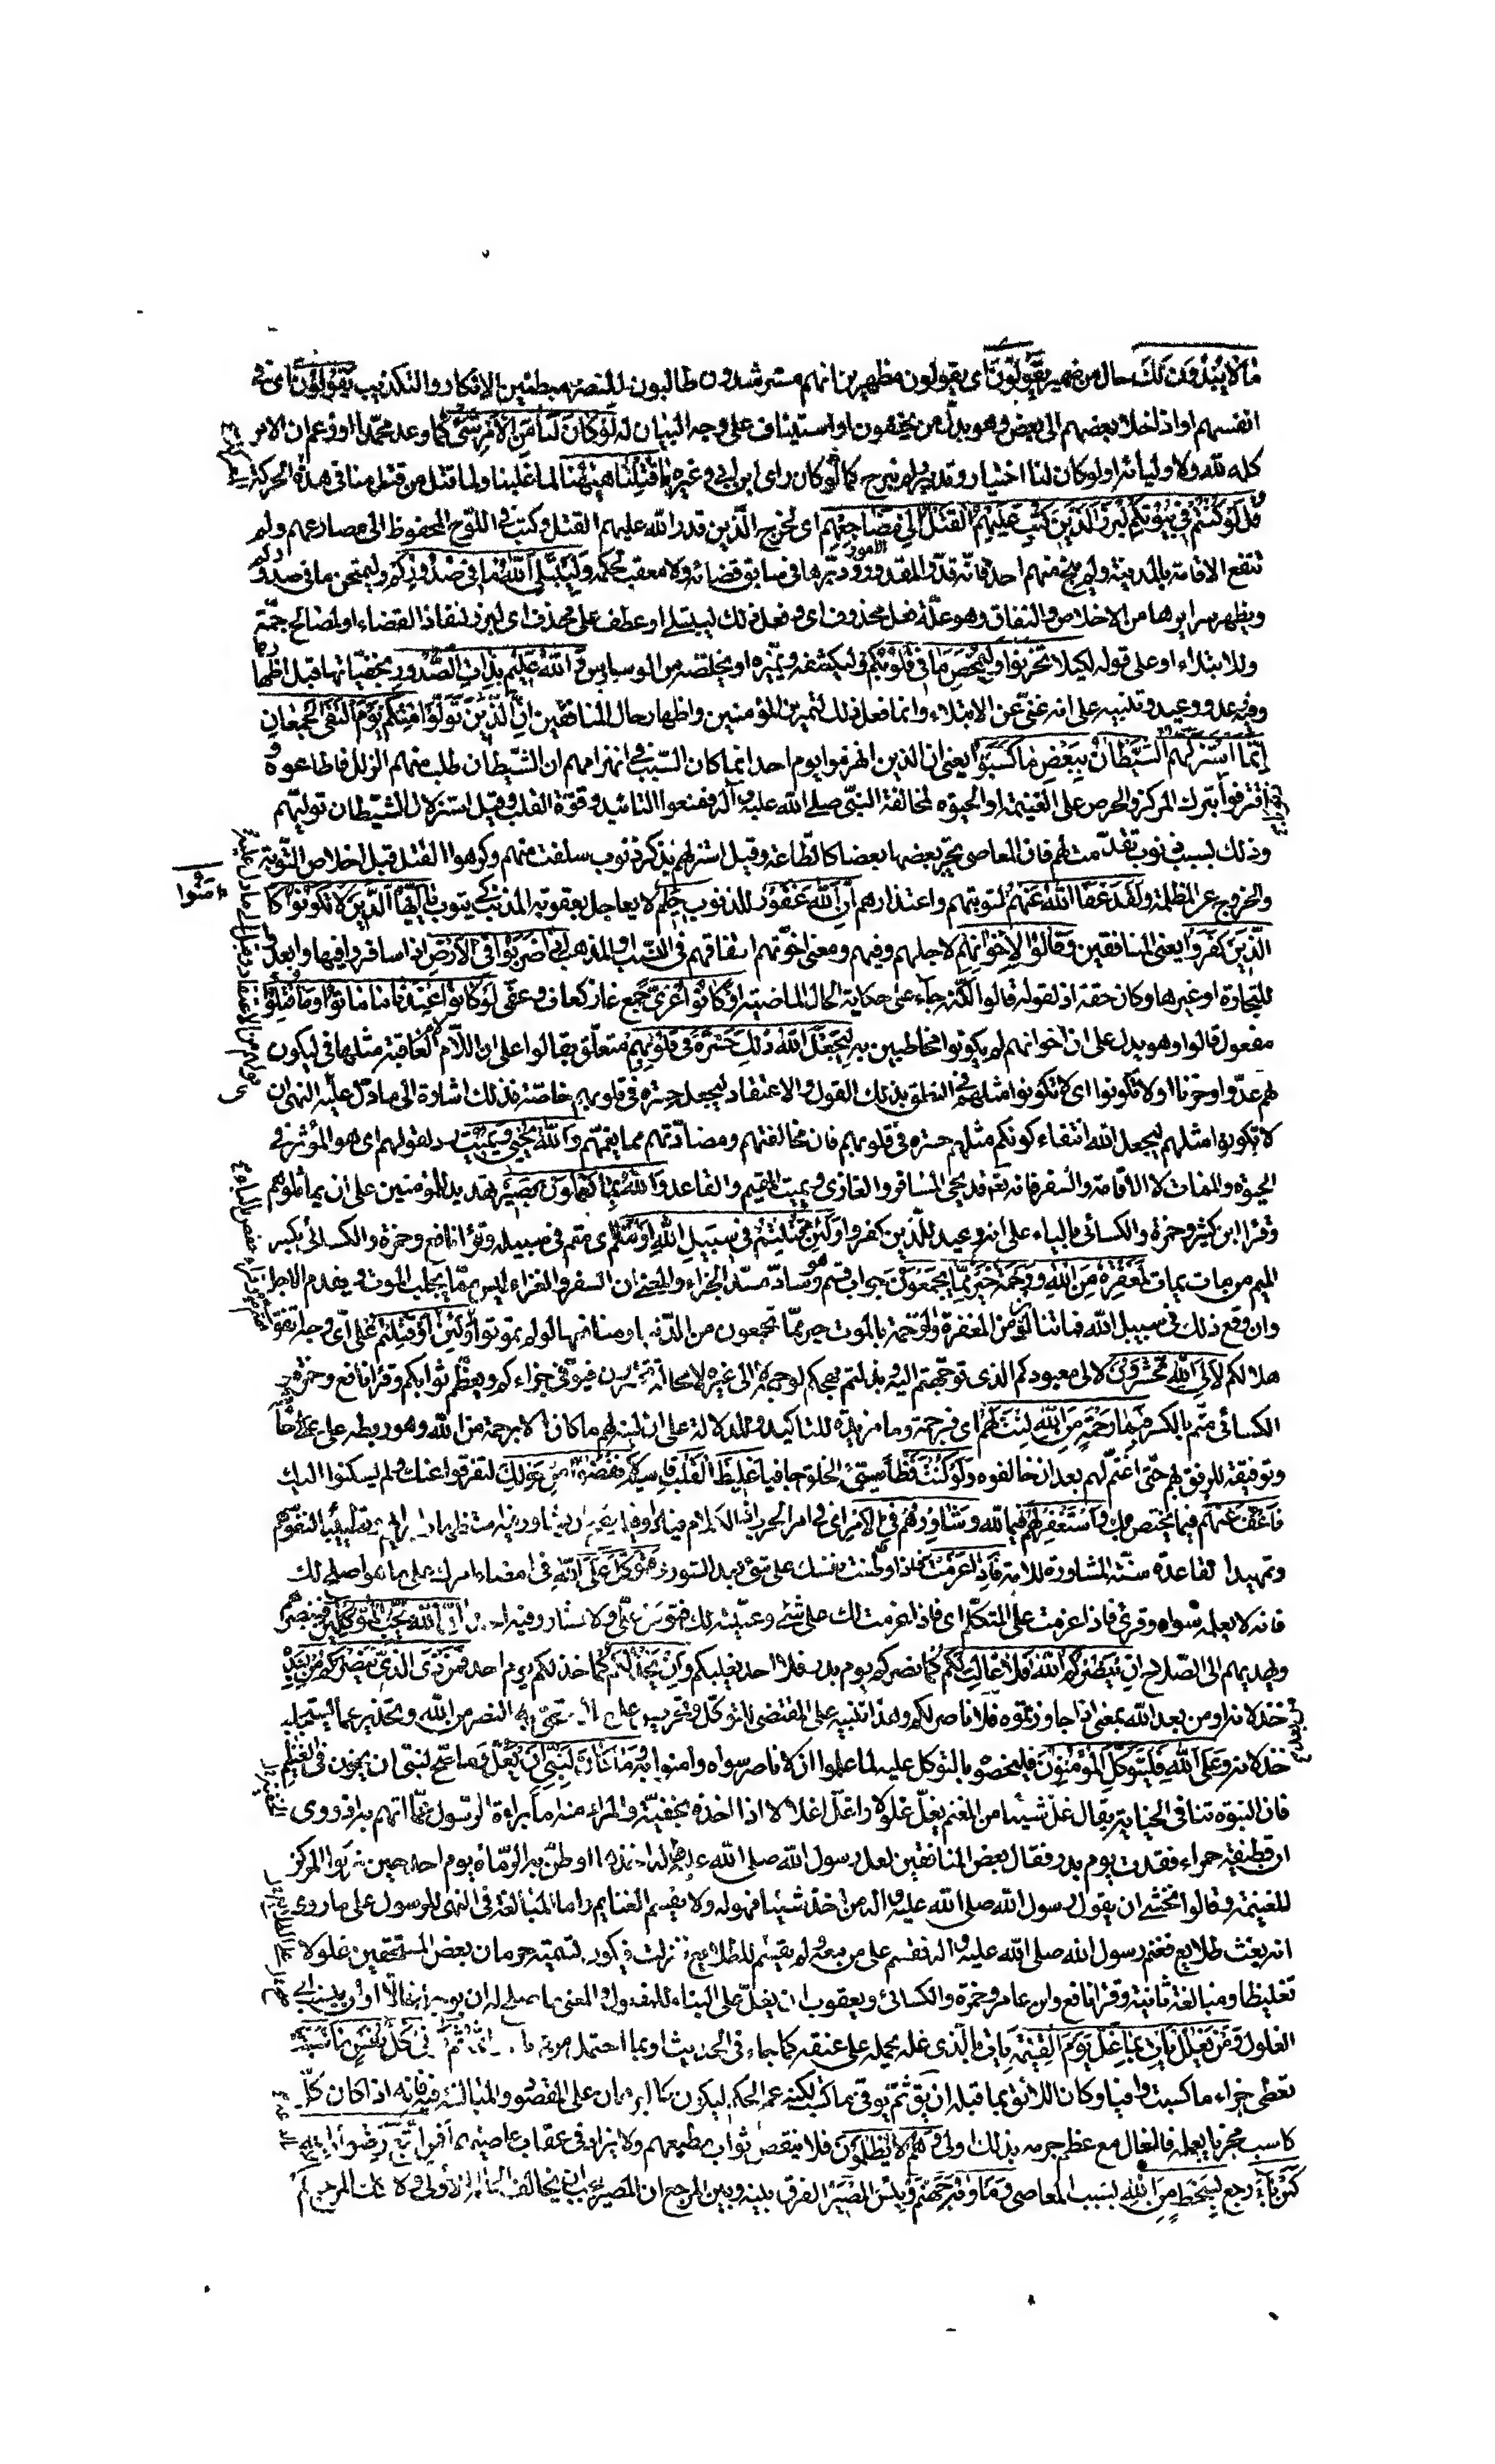 ما لا يبدون لك حال من ضمير يقولون اى يقولون مظهرين انهم مسترشدون طالبون للنصر مبطنين الانكار والتكذيب يقولون اى فى
انفسهم او اذا خلا بعضهم الى بعض وهو بدل من يخفون او استيناف على وجه البيان له لو كان لنا من الامر شئ كما وعد محمد او زعم ان الامر
كله لله ولاوليائه او لو كان لنا اختيار وتدبير لم نبرح كما كان راى ابن ابى وغيره ما قتلنا ههنا لما غلبنا ولما قتل من قتل منا فى هذه المعركة
قل لو كنتم فى بيوتكم لبرز الذين كتب عليهم القتل الى مضاجعهم اى لخرج الذين قدر الله عليهم القتل وكتب فى اللوح المحفوظ الى مصارعهم ولم
تنفع الاقامة بالمدينة ولم ينج منهم احد فانه قدر الامور ودبرها فى سابق قضائه ولا معقب لحكمه وليبتلى الله ما فى صدوركم وليمتحن ما فى صدوركم
ويظهر سرايرها من الاخلاص والنفاق وهو علة فعل محذوف اى وفعل ذلك ليبتلى او عطف على محذوف اى لبرز لنفاذ القضاء او لمصالح جمة
وللابتلاء او على قوله لكيلا تحزنوا وليمحص ما فى قلوبكم وليكشفه ويميزه او يخلصه من الوساوس والله عليم بذات الصدور بخفياتها قبل اظهارها
وفيه وعد ووعيد وتنبيه على انه غنى عن الابتلاء وانما فعل ذلك لتمرين المؤمنين واظهار حال المنافقين ان الذين تولوا منكم يوم التقى الجمعان
انما استزلهم الشيطان ببعض ما كسبوا يعنى ان الذين انهزموا يوم احد انما كان السبب فى انهزامهم ان الشيطان طلب منهم الزلل فاطاعوه و
اقترفوا بترك المركز والحرص على الغنيمة او الحيوة لمخالفة النبى صلى الله عليه وآله فمنعوا التائيد وقوة القلب وقيل استزلال الشيطان توليهم
وذلك بسبب ذنوب تقدمت لهم فان المعاصى يجر بعضها بعضا كالطاعة وقيل استزلهم بذكر ذنوب سلفت منهم وكرهوا القتل قبل اخلاص التوبة
والخروج عن المظلمة ولقد عفا الله عنهم لتوبتهم واعتذارهم ان الله غفور للذنوب حليم لا يعاجل بعقوبة المذنب كى يتوب يا ايها الذين امنوا لا تكونوا كا
الذين كفروا يعنى المنافقين وقالوا لاخوانهم لاجلهم وفيهم ومعنى اخوتهم اتفاقهم فى النسب او المذهب اذا ضربوا فى الارض اذا سافروا فيها وابعدوا
للتجارة او غيرها وكان حقه اذ لقوله قالوا لكنه جاء على حكاية الحال الماضية او كانوا غزى جمع غاز كعاف وعفى لو كانوا عندنا ما ماتوا وما قتلوا
مفعول قالوا وهو يدل على ان اخوانهم لم يكونوا مخاطبين به ليجعل الله ذلك حسرة فى قلوبهم متعلق بقالوا على ان اللام لام العاقبة مثلها فى ليكون
لهم عدوا وحزنا او لا تكونوا اى لا تكونوا مثلهم فى النطق بذلك القول والاعتقاد ليجعل حسرة فى قلوبهم خاصة فذلك اشارة الى ما دل عليه النهى ان
لا تكونوا مثلهم ليجعل الله انتفاء كونكم مثلهم حسرة فى قلوبهم فان مخالفتهم ومضادتهم مما يغمهم والله يحيى ويميت رد لقولهم اى هو المؤثر فى
الحيوة والممات لا الاقامة والسفر فانه تعالى قد يحيى المسافر والغازى ويميت المقيم والقاعد والله بما تعملون بصير تهديد للمؤمنين على ان يماثلوهم
وقرأ ابن كثير وحمزة والكسائى بالياء على انه وعيد للذين كفروا ولئن قتلتم فى سبيل الله او متم اى متم فى سبيله وقرأ نافع وحمزة والكسائى بكسر
الميم من مات يمات لمغفرة من الله ورحمة خير مما يجمعون جواب قسم وهو ساد مسد الجزاء والمعنى ان السفر والغزاء ليس مما يجلب الموت ويقدم الاجل
وان وقع ذلك فى سبيل الله فما تنالون من المغفرة والرحمة بالموت خير مما تجمعون من الدنيا ومنافعها لو لم تموتوا ولئن متم او قتلتم على اى وجه اتفق
هلاككم لالى الله تحشرون لالى معبودكم الذى توجهتم اليه وبذلتم مهجكم لوجهه لا الى غيره لا محالة تحشرون فيوفى جزاءكم ويعظم ثوابكم وقرأ نافع وحمزة و
الكسائى متم بالكسر فبما رحمة من الله لنت لهم اى فبرحمة وما مزيدة للتاكيد والدلالة على ان لينه لهم ما كان الا برحمة من الله وهو ربطه على جاشه
وتوفيقه للرفق بهم حتى اغتم لهم بعد ان خالفوه ولو كنت فظا سيئ الخلق جافيا غليظ القلب قاسيه لانفضوا من حولك لتفرقوا عنك ولم يسكنوا اليك
فاعف عنهم فيما يختص بك واستغفر لهم فيما لله وشاورهم فى الامر اى فى امر الحرب اذ الكلام فيه او فيما يصح ان يشاور فيه استظهارا برايهم وتطييبا لنفوسهم
وتمهيدا لقاعدة سنة المشاورة للامة فاذا عزمت فاذا وطنت نفسك على شئ بعد الشورى فتوكل على الله فى امضاء امرك على ما هو اصلح لك
فانه لا يعلمه سواه وقرئ فاذا عزمت على التكلم اى فاذا عزمت لك على شئ وعينته لك فتوكل على ولا تشاور فيه احدا ان الله يحب المتوكلين فينصرهم
ويهديهم الى الصلاح ان ينصركم الله فلا غالب لكم كما نصركم يوم بدر فلا احد يغلبكم وان يخذلكم كما خذلكم يوم احد فمن ذى الذى ينصركم من بعده
خذلانه او من بعد الله بمعنى اذا جاوزتموه فلا ناصر لكم وهذا تنبيه على المقتضى للتوكل وتحريص على ما يستحق به النصر من الله وتحذير عما يستجلب
خذلانه وعلى الله فليتوكل المؤمنون فليخصوه بالتوكل عليه لما علموا ان لا ناصر سواه وامنوا به وما كان لنبى ان يغل وما صح لنبى ان يخون فى الغنايم
فان النبوة تنافى الخيانة يقال غل شيئا من المغنم يغل غلولا واغل اغلالا اذا اخذه بخفية والمراد منه اما براءة الرسول عما اتهم به اذ روى
ان قطيفة حمراء فقدت يوم بدر فقال بعض المنافقين لعل رسول الله صلى الله عليه وآله اخذها او ظن به الرماة يوم احد حين تركوا المركز
للغنيمة وقالوا نخشى ان يقول رسول الله صلى الله عليه وآله من اخذ شيئا فهو له ولا يقسم الغنايم واما المبالغة فى النهى للرسول على ما روى
انه بعث طلايع فغنم رسول الله صلى الله عليه وآله فقسم على من معه ولم يقسم للطلايع فنزلت فيكون تسمية حرمان بعض المستحقين غلولا
تغليظا ومبالغة ثانية وقرأ نافع وابن عامر وحمزة والكسائى ويعقوب ان يغل على البناء للمفعول والمعنى ما صح له ان يوجد غالا او ان ينسب الى
الغلول ومن يغلل يات بما غل يوم القيمة يات بالذى غله يحمله على عنقه كما جاء فى الحديث او بما احتمل من وباله واثمه ثم توفى كل نفس ما كسبت
تعطى جزاء ما كسبت وافيا وكان اللائق بما قبله ان يق ثم يوفى ما كسب لكنه عمم الحكم ليكون كالبرهان على المقصود والمبالغة فيه فانه اذا كان كل
كاسب مجزيا بعمله فالغال مع عظم جرمه بذلك اولى وهم لا يظلمون فلا ينقص ثواب مطيعهم ولا يزاد فى عقاب عاصيهم افمن اتبع رضوان الله
كمن باء رجع بسخط من الله بسبب المعاصى وماواه جهنم وبئس المصير الفرق بينه وبين المرجع ان المصير يجب ان يخالف الحالة الاولى ولا كذلك المرجع هم